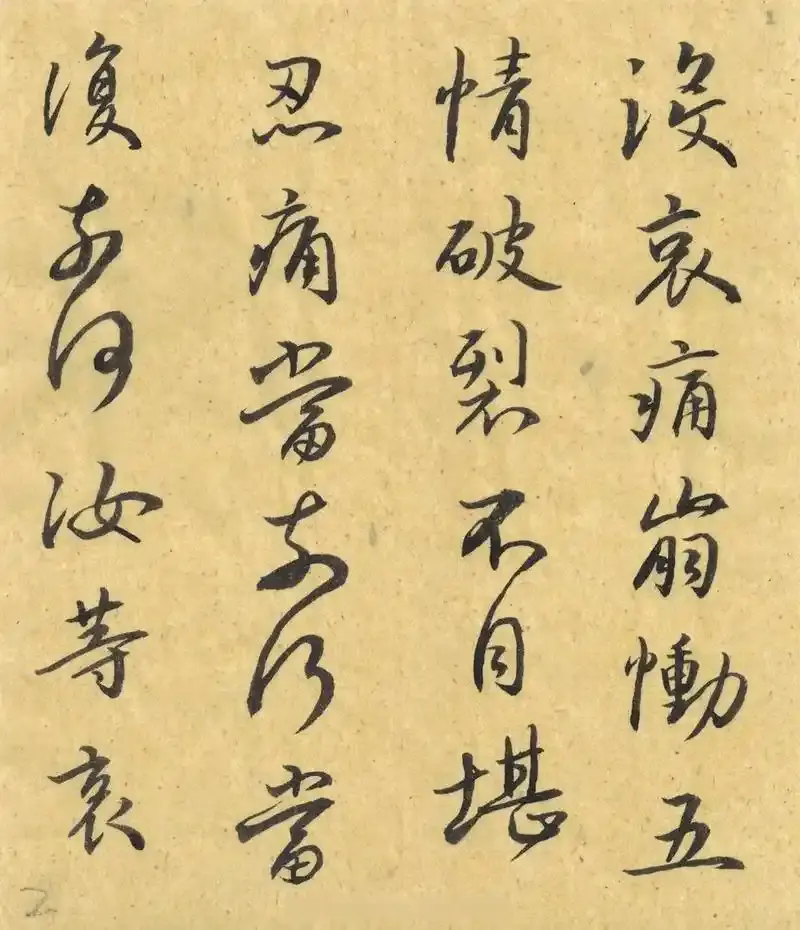 1
沒哀痛崩慟五
情破裂不自堪
忍痛當奈何當
復奈何汝等哀
2